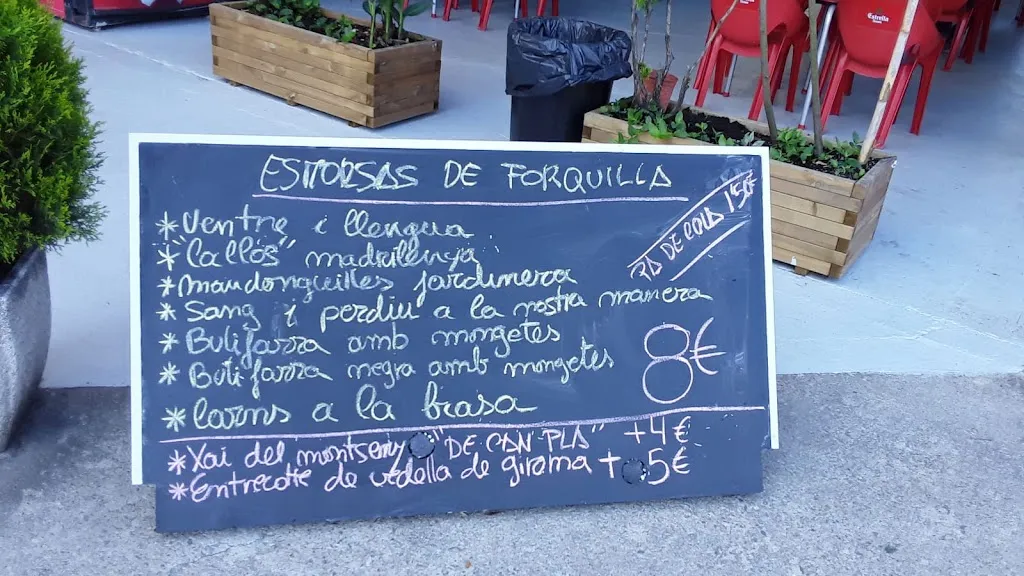 ESMORSAS DE FORQUILLA
*Ventre i llengua
*"Callos" madrilenya
*Mandonguilles jardinera
*Sang i perdiu a la nostra manera
*Butifarra amb mongetes
*Butifarra negra amb mongetes
*Carns a la brasa
8€
*Xai del montseny "DE CAN PLA" +4€
*Entrecotte de vedella de girona +5€
Estrella